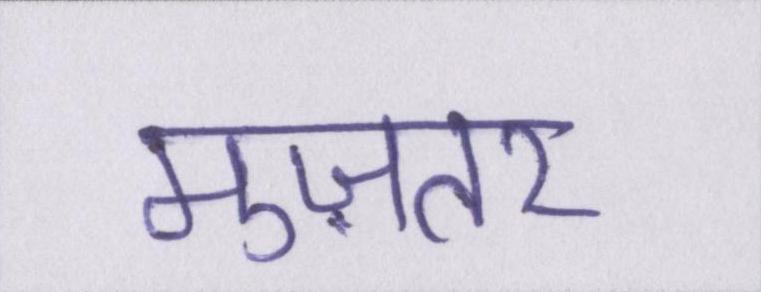 मुज़तर